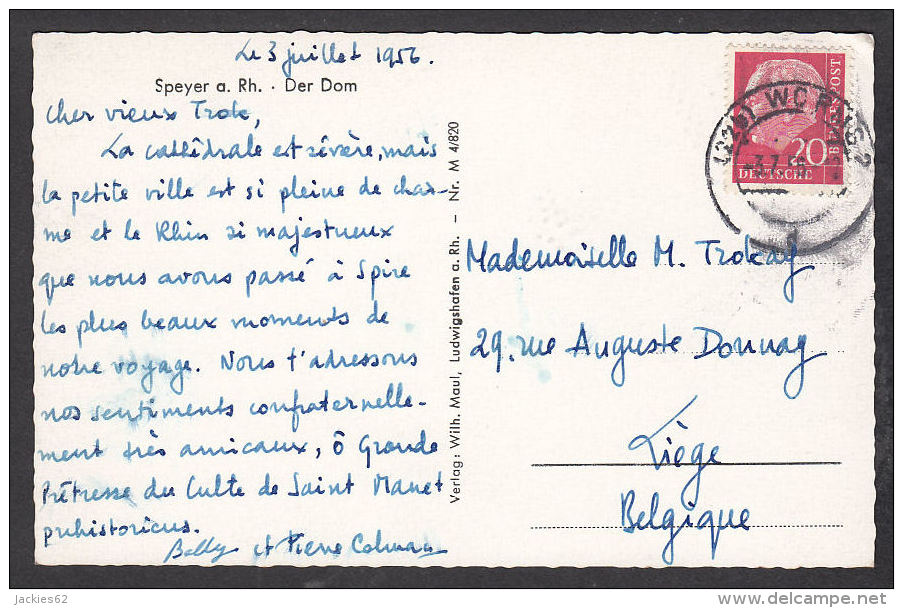 Le 3 juillet 1956.
Speyer a. Rh. · Der Dom
Cher vieux Trok,
La cathédrale est sévère, mais
la petite ville est si pleine de char-
me et le Rhin si majestueux
que nous avons passé à Spire
les plus beaux moments de
notre voyage. Nous t'adressons
nos sentiments confraternelle-
ment très amicaux, ô Grande
Prêtresse du Culte de Saint Manet
prehistoricus.
et Pierre Colman
Verlag: Wilh. Maul, Ludwigshafen a. Rh. – Nr. M 4/820
DEUTSCHE
BUNDESPOST
20
WORMS 2
-3.7.56
Mademoiselle M. Trokay
29, rue Auguste Donnay
Liège
Belgique
jackies62
delcampe.net